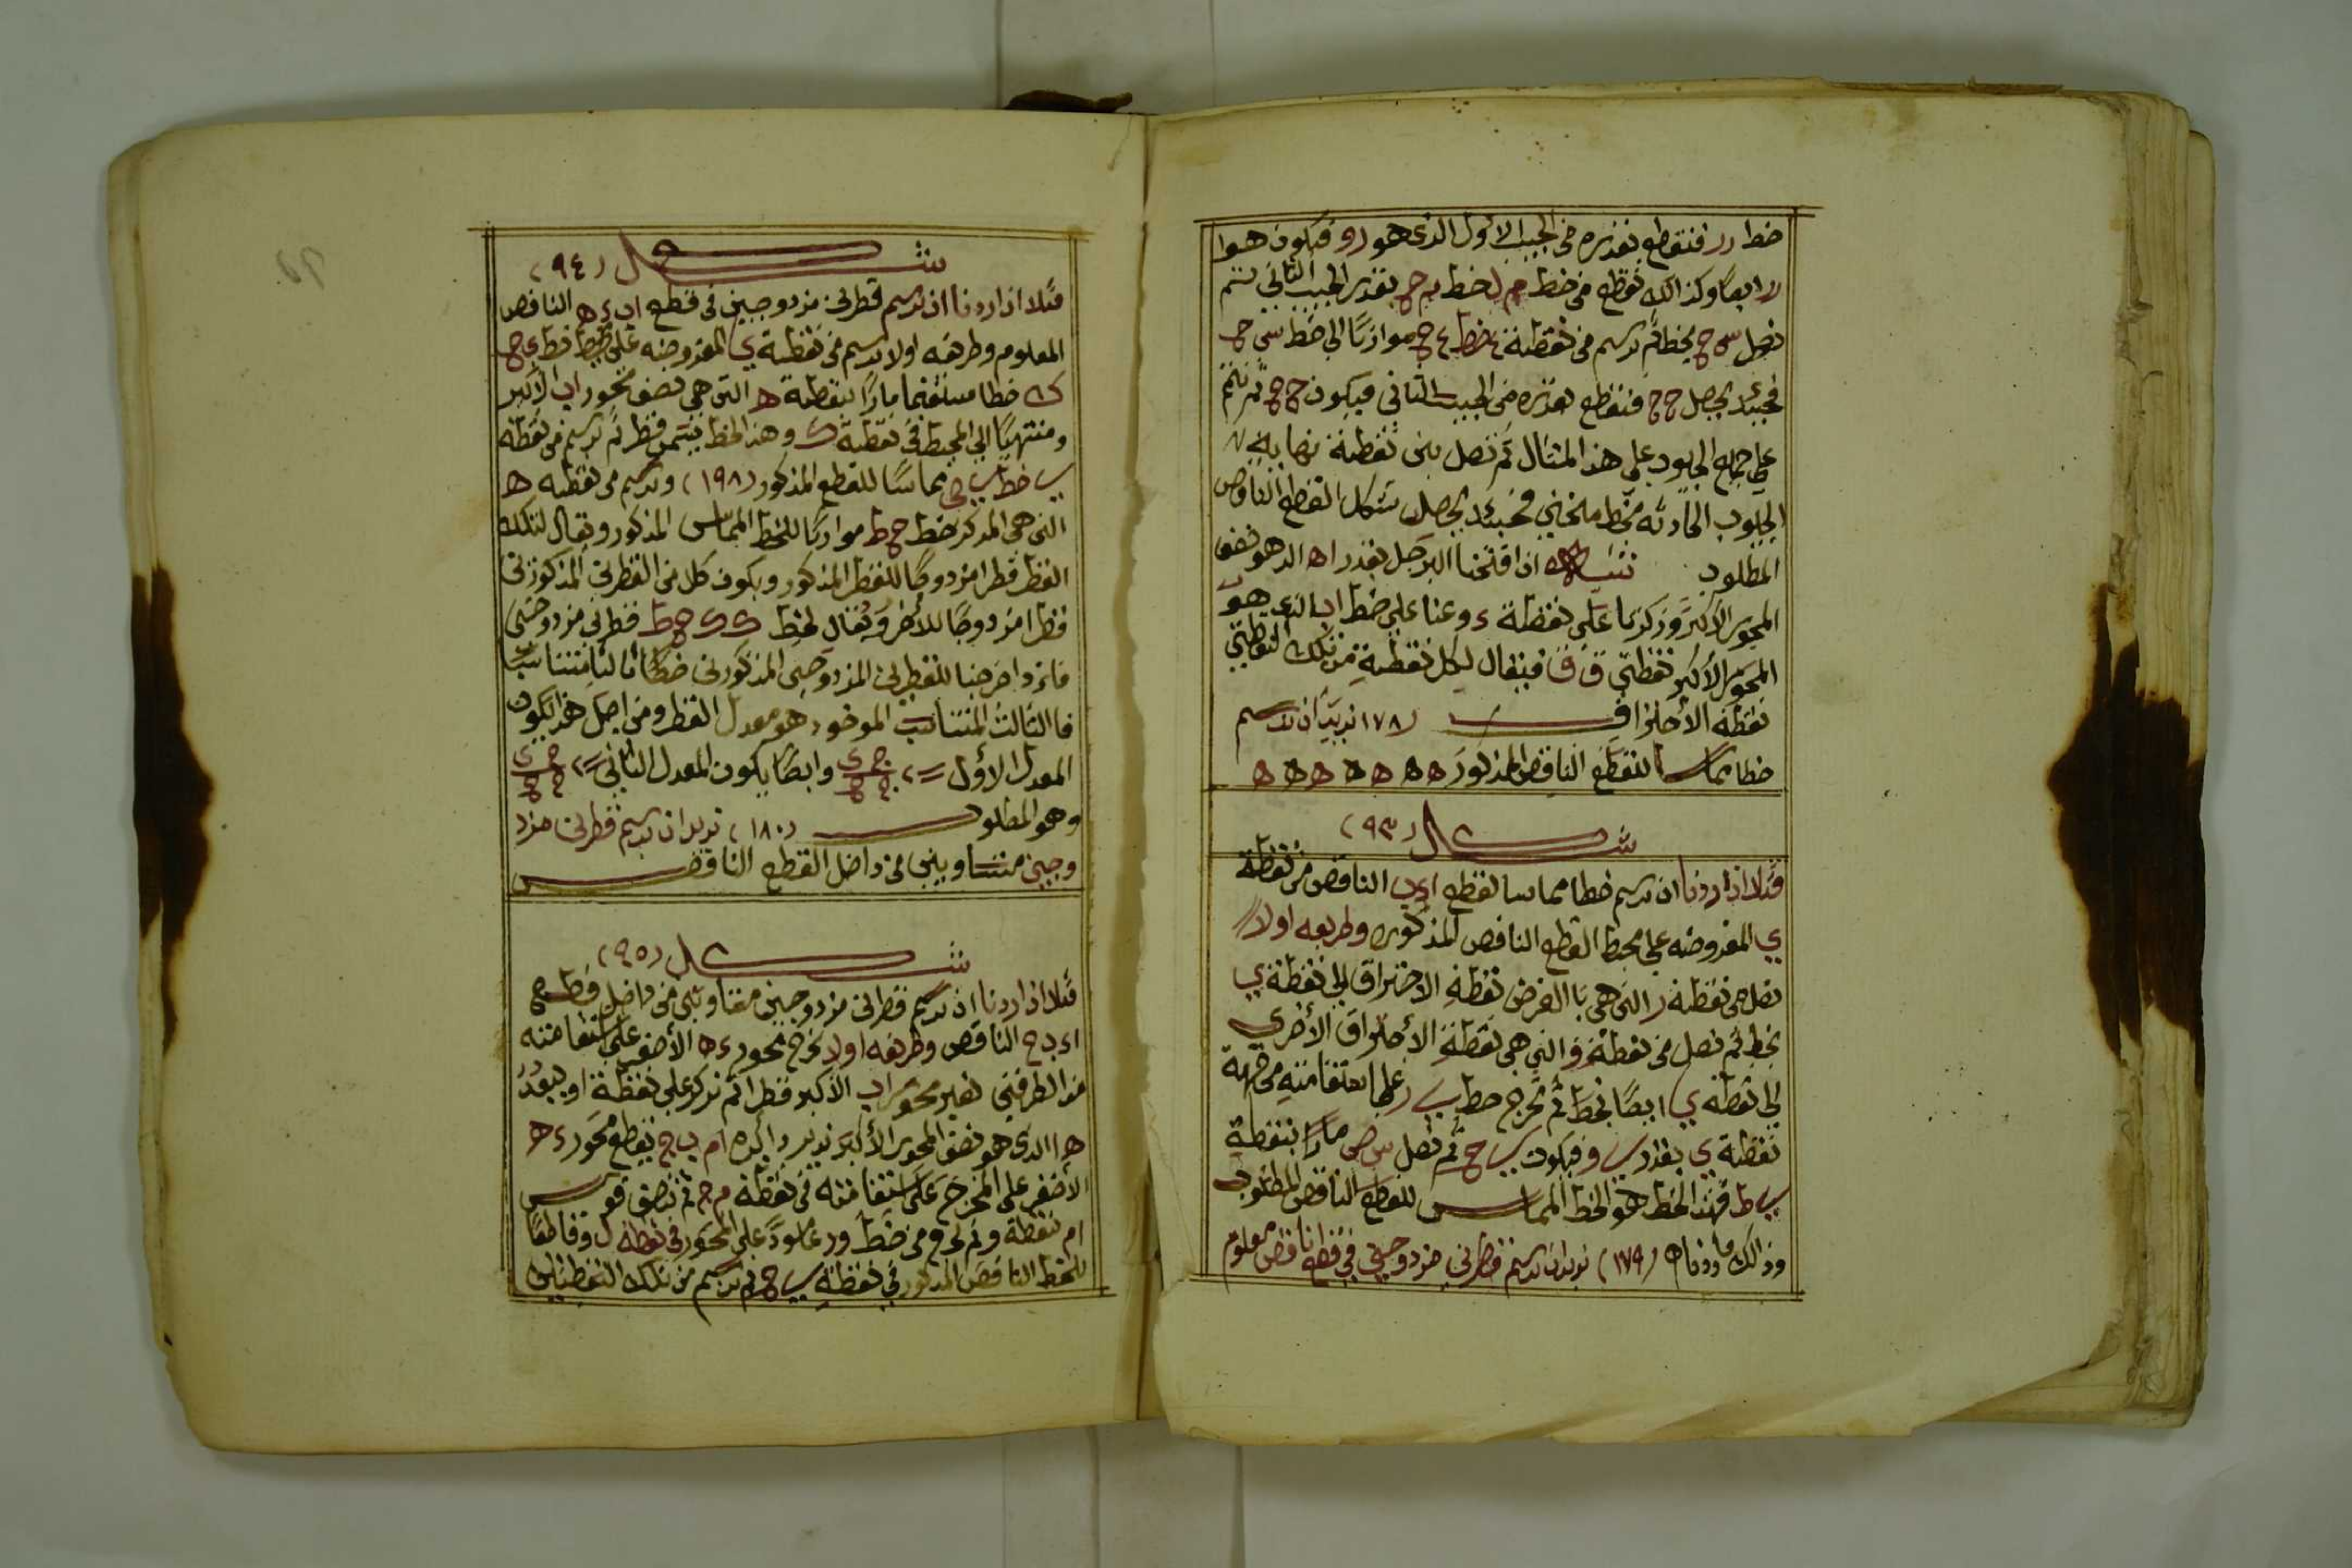 خط رر فنقطع بقدره من الجيب الاول الذى هو رو فيكون هوا
لا ايضا وكذالك نقطع من خط م ل خط م ح بقدر الجيب الثانى ثم
نصل س ح بخط ثم نرسم من نقطة ع خط ع ح موازيا الى خط س ح
فحينئذ يحصل ح ح فنقطع بقدره من الجيب الثانى فيكون ح ح ثم نتمم
على جميع الجيوب على هذا المثال ثم نصل بين نقطة نهاية
الجيوب الحادثه بخط منحنى فحينئذ يحصل شكل القطع الناقص
المطلوب اذا فتحنا البرجل بقدر اه الذ هو نصف
المحور الأكبر وركزنا على نقطة ء وعنا على خط اب الذى هو
المحور الأكبر نقطتى ق ق فيقال لكل نقطة من تلك النقطتين
نقطة الأحتراف (١٧٨) نريد ان نرسم
خطا مماسا للقطع الناقص المذكور ه ه ه ه ه ه
شكل (٩٣)
مثلا اذا اردنا ان نرسم خطا مماسا لقطع اءب الناقص من نقطة
ي المفروضه على محيط القطع الناقص المذكوره وطريقه اولا
نصل من نقطة ر التى هى با الفرض نقطة الاحتراق الى نقطة ي
بخط ثم نصل من نقطة و التى هى نقطة الأحتراق الأخرى
الى نقطة ي ايضا بخط ثم نخرج خط ي ر على استقامته من جهة
نقطة ي بقدر ي و فيكون ي ح ثم نصل س ض مارا بنقطة
ي ط فهذا الخط هو الخط المماس للقطع الناقص المطلوب
وذالك ما اردناه (١٧٩) نريد ان نرسم قطرين مزدوجين فى قطع ناقص معلوم
شكل (٩٤)
مثلا اذا اردنا ان نرسم قطرين مزدوجين فى قطع اب ء ه الناقص
المعلوم وطريقه اولا نرسم من نقطة ي المفروضه على محيط قطع ى ح
ك خطا مستقيما مارا بنقطة ه التى هى نصف محور اب الأكبر
ومنتهيا الى المحيط فى نقطة ك وهذا الخط يتسمى قطر ثم نرسم من نقطة
ي خط ي ح مماسا للقطع المذكور (١٩٨) ونرسم من نقطه ه
التى هى المركز خط ح ط موازيا للخط المماس المذكور ويقال لتلك
القطر قطرا مزدوجا للقطر المذكور ويكون كل من القطرين المذكورين
قطرا مزدوجا للأخر ويقال لخط ك ك ح ط قطرين مزدوجين
فاذا اخرجنا للقطرين المزدوجين المذكورين خطا ثالثا متناسبا
فا الثالث المتناسب الموخود هو معدل القطر ومن اجل هذا يكون
المعدل الاول = وايضا يكون المعدل الثانى =
وهو المطلوب (١٨٠) نريد ان نرسم قطرين مزد
وجين متساويين من داخل القطع الناقص
شكل (٩٥)
مثلا اذا اردنا ان نرسم قطرين مزدوجين متساويين من داخل قطع
اءبح الناقص وطريقه اولا نخرج محور ءه الأصغر على استقامته
من الطرفين نصير محور اب الأكبر قطرا ثم نركز على نقطة ا و ببعد
ه ا الذى هو نصف المحور الأكبر ندير دائره ام ب ج يقطع محور ءه
الأصغر على المخرج على استقامته فى نقطة م ج ثم ننصف قوس
ام نقطة و ثم نخرج من خط ور عمودا على المحور فى نقطة ل وقاطعا
للقطع الناقص المذكور فى نقطة ي ح ثم نرسم من تلك النقطتين